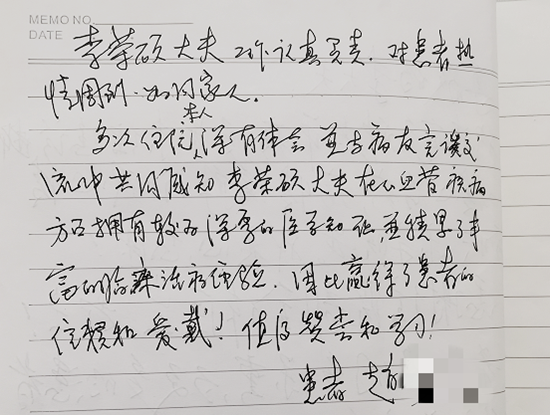 MEMO NO.
DATE
李荣硕大夫工作认真负责.对患者热
情周到.如同家人.
多次住院本人深有体会并与病友完谈交
流中共同感知李荣硕大夫在心血管疾病
方面拥有较为深厚的医学知识,并积累了丰
富的临床治病经验.因此赢得了患者的
信赖和爱戴!值得赞尝和学习!
患者 赵